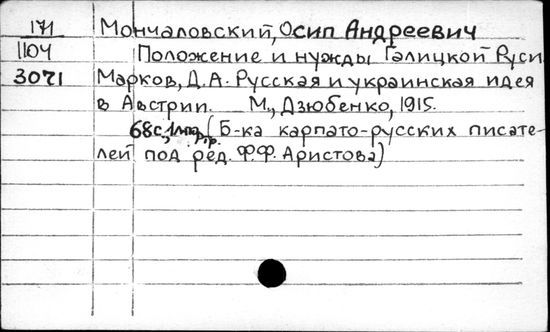 171 Мончаловский, Осип Андреевич
1104 Положение и нужды Галицкой Руси.
3071 Марков, Д.А. Русская и украинская идея
в Австрии. М., Дзюбенко, 1915.
68с., (Б-ка карпато-русских писате-
лей под ред. Ф.Ф. Аристова)